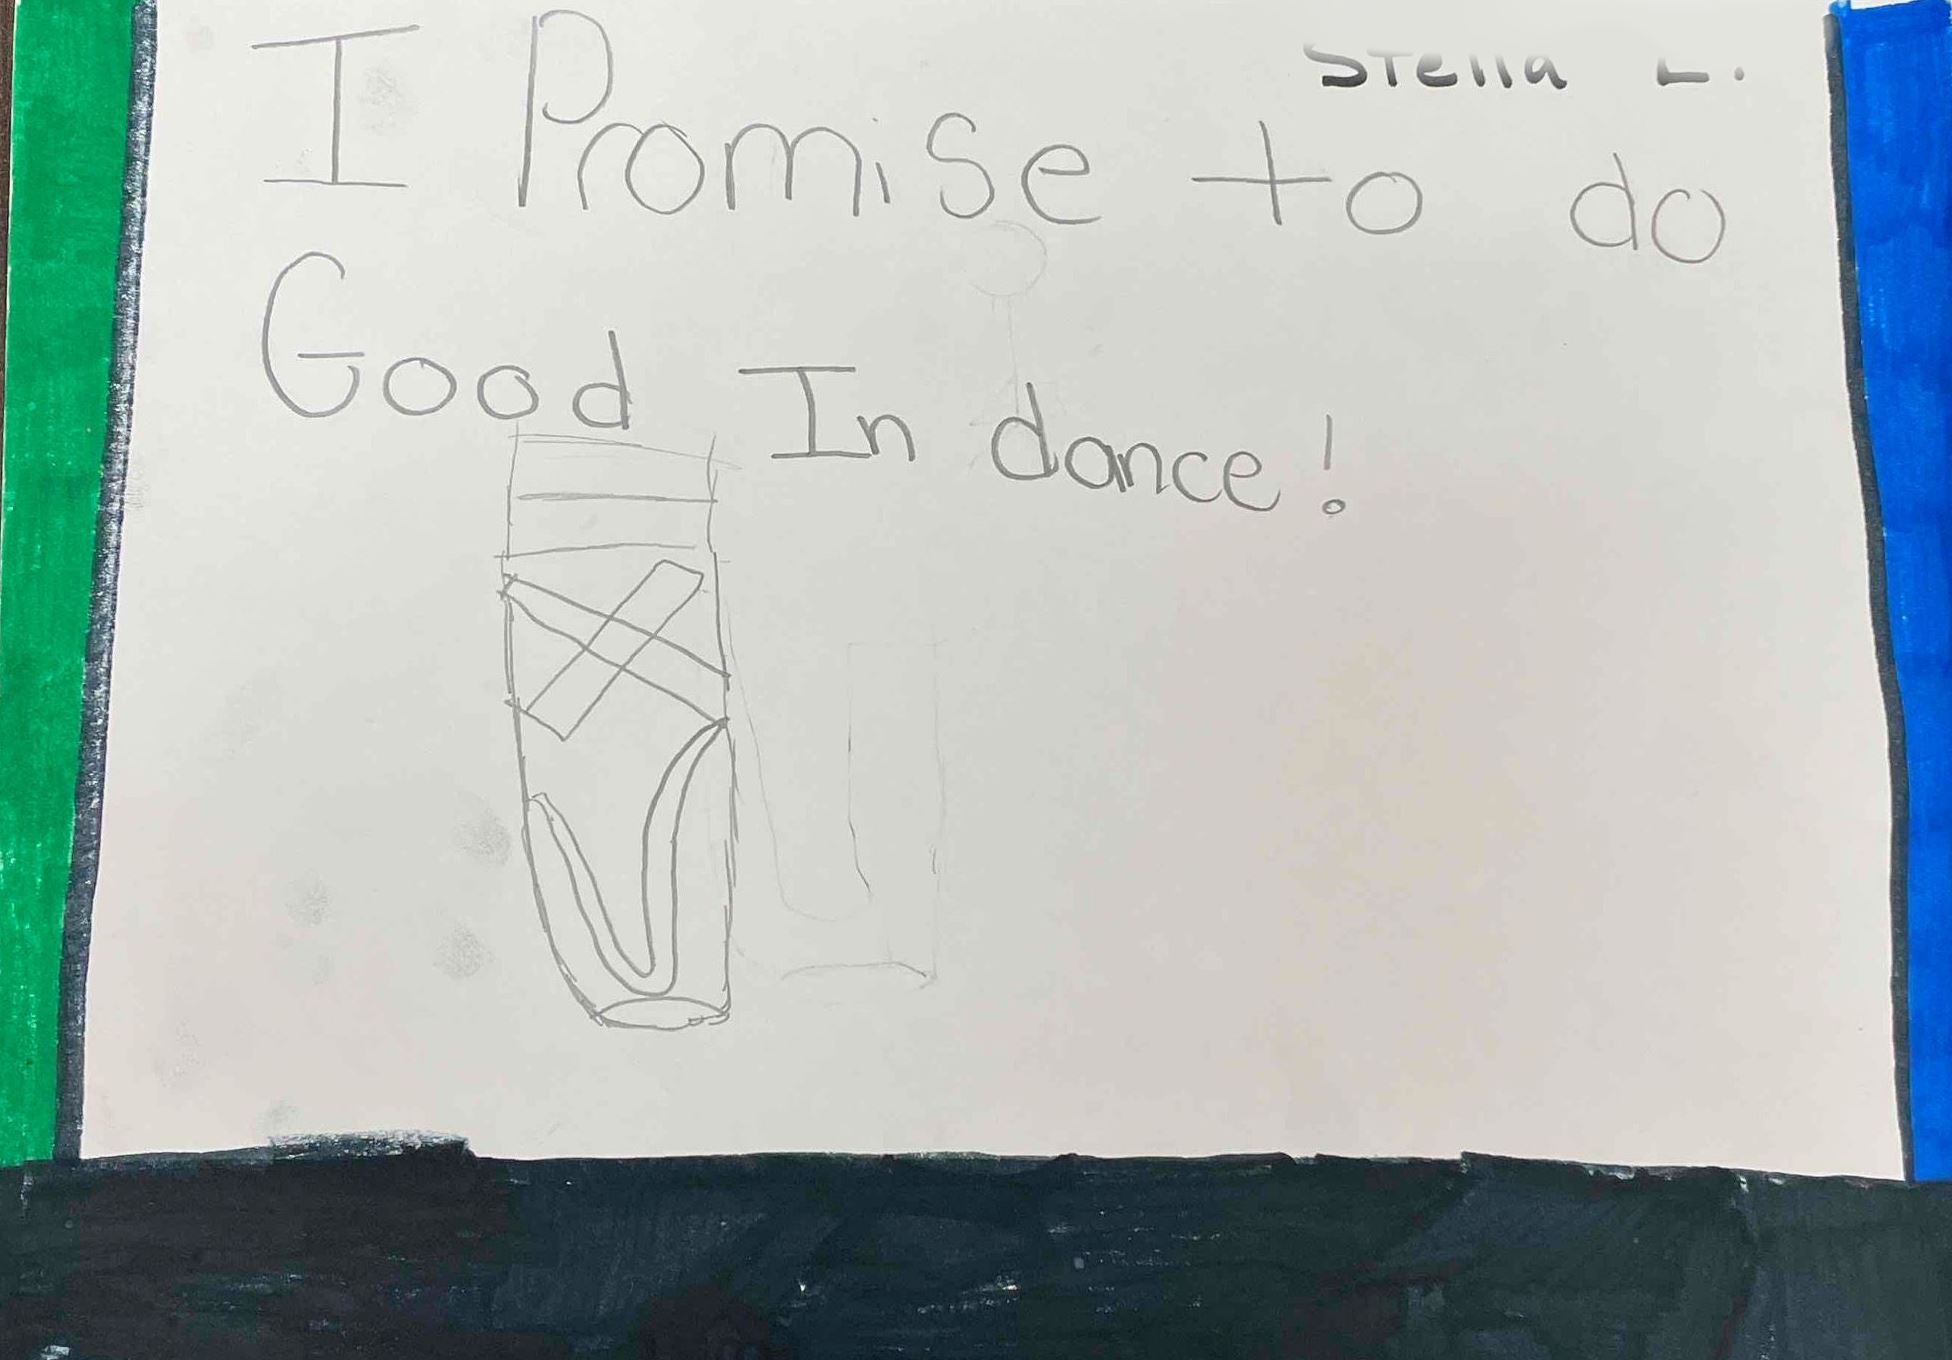 Stella L.
I Promise to do
Good In dance!